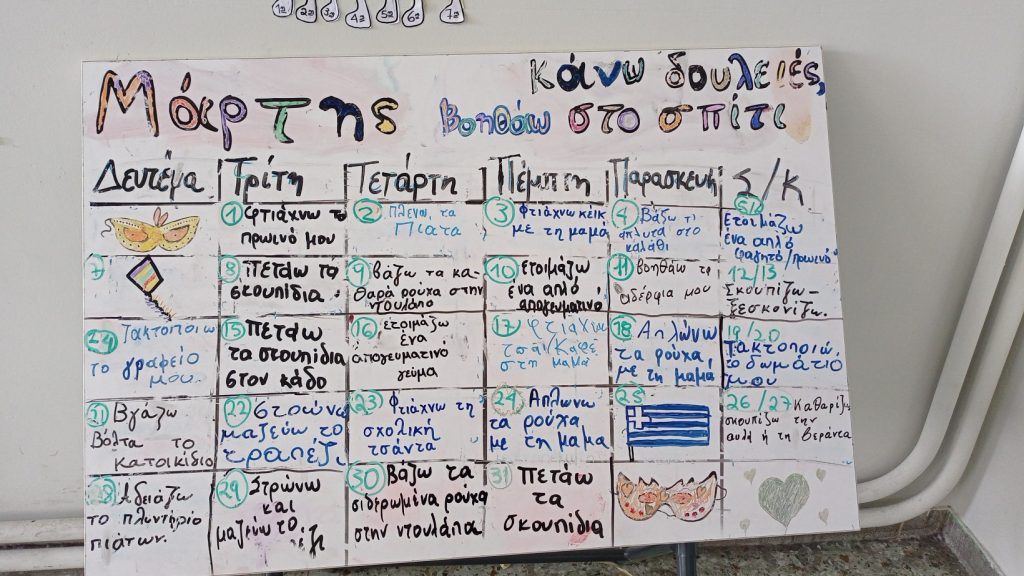 1α 2α 3α 4α 5α 6α 7α
Μάρτης
κάνω δουλειές,
Βοηθάω στο σπίτι
Δευτέρα Τρίτη Τετάρτη Πέμπτη Παρασκευή Σ/Κ
1 Φτιάχνω το
πρωινό μου
2 Πλένω τα
Πιατα
3 Φτιάχνω κέικ
με τη μαμά
4 Βάζω τ
άπλυτα στο
καλάθι
5/6
Ετοιμάζω
ένα απλό
φαγητό/πρωινό
7
8 Πετάω τα
σκουπίδια
9 βάζω τα κα-
θαρά ρούχα στην
ντουλάπα
10 ετοιμάζω
ένα απλό
απογευματινο
11 βοηθάω τ
αδέρφια μου
12/13
Σκουπίζω-
ξεσκονίζω.
Τακτοποιω
το γραφείο
μου
15 Πετάω
τα σκουπίδια
στον κάδο
16 ετοιμάζω
ένα
απογευματινό
γεύμα
17 Φτιάχνω
τσάι/καφέ
στη μαμά
18 Απλώνω
τα ρούχα
με τη μαμά
19/20
Τακτοποιώ
το δωμάτιό
μου
21 Βγάζω
βόλτα το
κατοικίδιο
22 Στρώνω
μαζεύω το
τραπέζι
23 Φτιάχνω τη
σχολική
τσάντα
24 Απλωνω
τα ρούχα
με τη μαμα
25
26/27 Καθαρίζω
σκουπίζω την
αυλή ή τη βεράντα
28 Αδειάζω
το πλυντήριο
πιάτων.
29 Στρώνω
και
μαζεύω το
30 βάζω τα
σιδερωμένα ρούχα
στην ντουλάπα
31 Πετάω
τα
σκουπίδια